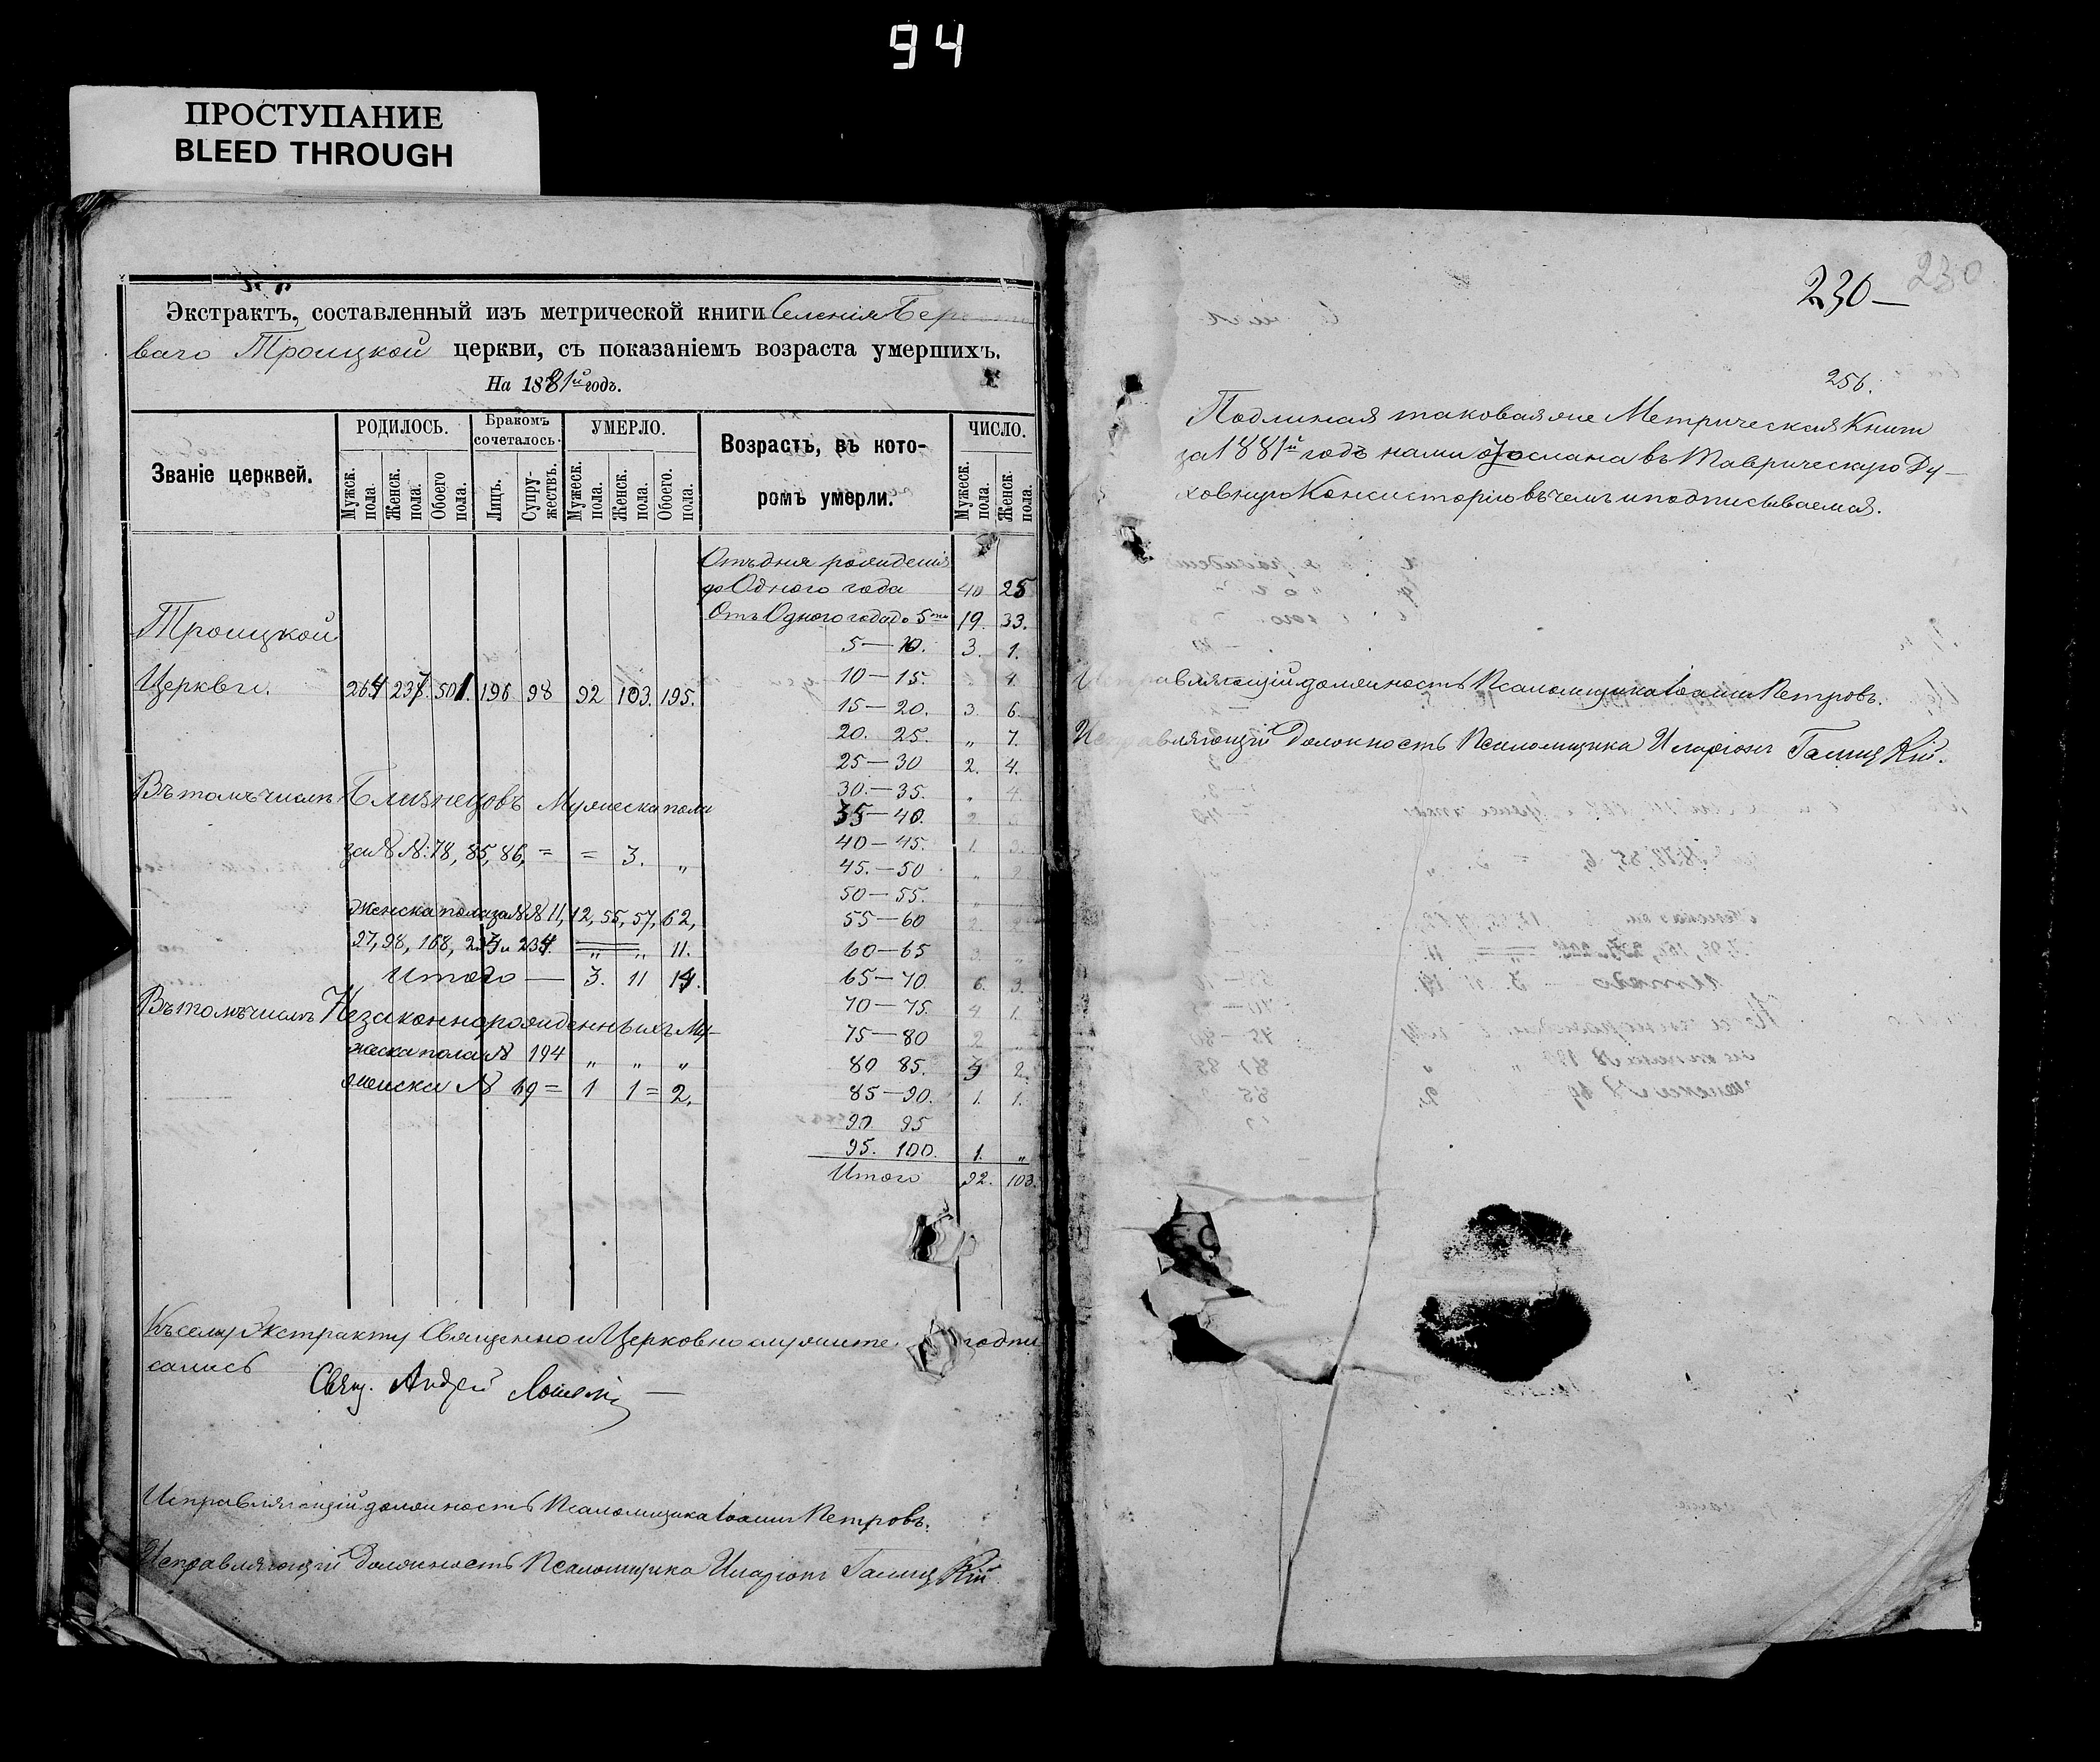 94
ПРОСТУПАНИЕ
BLEED THROUGH
Экстрактъ, составленный изъ метрической книги Селенія
ваго Троицкой церкви, съ показаніемъ возраста умершихъ.
На 1881й годъ.
Званіе церквей.
РОДИЛОСЬ.
Мужск. пола.
Женск. пола.
Обоего пола.
Бракомъ сочеталось.
Лицъ.
Супружествъ.
УМЕРЛО.
Мужеск. пола.
Женск. пола.
Обоего. пола.
Возрастъ, въ которомъ умерли.
ЧИСЛО.
Мужеск. пола.
Женск. пола.
Отъ дня рожденія
до Одного года 40 25
Отъ Одного года до 5ти 19. 33.
Троицкой
5—10. 3. 1.
Церкви. 264 237. 501. 196 98 92 103. 195.
10—15. 4.
15—20. 3. 6.
20. 25. „ 7.
25—30 2. 4.
30.—35. „ 4.
Въ томъ числѣ Близнецовъ Мужеска пола
35—40. 2.
40—45. 1. 3.
за №№: 78, 85, 86, = = 3. „
45.—50 „ 2.
50—55.
Женска пола за №№ 11, 12, 55, 57, 62,
55—60 2.
97, 98, 168, и 234. „ 11.
60—65
Итого — 3. 11 14.
65—70. 6. 3.
Въ томъ числѣ Незаконнорожденныхъ Му-
70—75. 4 1.
75—80 2
жеска пола № 194 „ „ „
80 85. 3 2.
женска № 69 = 1 1 = 2.
85—90. 1. 1.
90. 95
95. 100. 1. „
Итого 92. 103.
Къ сему Экстракту Священно и Церковнослужите подпи
сались
Свящ. Андрей
Исправляющій должность Псаломщика Іоаннъ Петровъ.
Исправляющій Должность Псаломщика Иларіонъ Галицкій
230
230—
256.
Подлиная таковая же Метрическая Книга
за 1881й годъ нами отослана въ Таврическую Ду-
ховную Консисторію въ чемъ и подписываемся.
Исправляющій должность Псаломщика Іоаннъ Петровъ.
Исправляющій Должность Псаломщика Иларіонъ Галицкій.